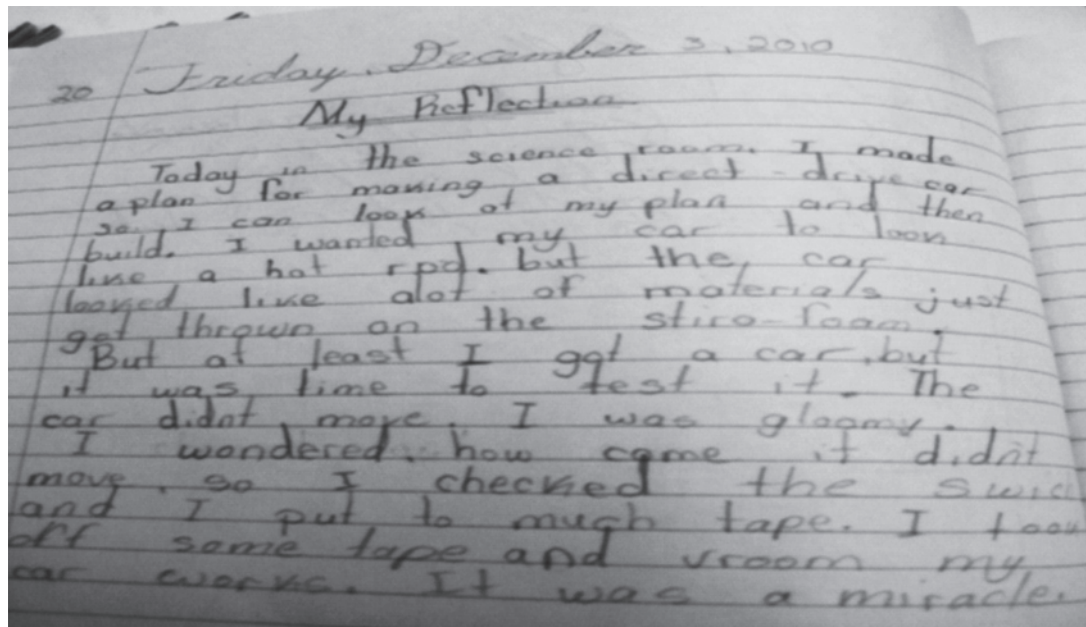 Friday, December 3, 2010
20
My Reflection
Today in the science room I made
a plan for making a direct-drive car
so I can look at my plan and then
build. I wanted my car to look
like a hot rod. but the car
looked like alot of materials just
get thrown on the stiro-foam.
But at least I got a car, but
it was time to test it. The
car didnt move. I was gloomy.
I wondered, how come it didnt
move. so I checked the
and I put to much tape. I took
off some tape and vroom my
car works. It was a miracle.